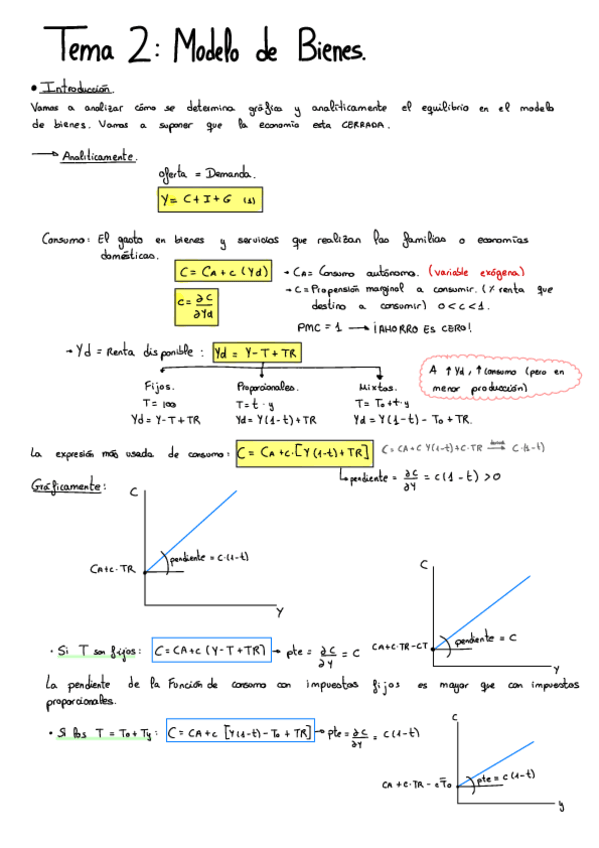 Tema 2: Modelo de Bienes.
• Introducción.
Vamos a analizar cómo se determina gráfica y analíticamente el equilibrio en el modelo
de bienes. Vamos a suponer que la economía esta CERRADA.
→ Analíticamente.
oferta = Demanda.
Y = C + I + G (1)
Consumo: El gasto en bienes y servicios que realizan las familias o economías
domésticas.
C = CA + c (Yd)
→ CA = Consumo autónomo. (variable exógena)
→ C = Propensión marginal a consumir. (% renta que
destino a consumir) 0 < c < 1.
c = ∂C / ∂Yd
PMC = 1 → ¡AHORRO ES CERO!
→ Yd = Renta disponible : Yd = Y - T + TR
A ↑ Yd, ↑ Consumo (pero en
menor producción)
Fijos. Proporcionales. Mixtos.
T = 100 T = t · y T = To + t · y
Yd = Y - T + TR Yd = Y (1 - t) + TR Yd = Y (1 - t) - To + TR.
La expresión más usada de consumo: C = CA + c · [Y (1 - t) + TR]
pendiente = ∂C / ∂Y = c (1 - t) > 0
Gráficamente:
C
pendiente = c · (1 - t)
CA + c · TR
Y
C
CA + C · TR - CT
pendiente = c
Y
· Si T son fijos: C = CA + c (Y - T + TR) → pte = ∂C / ∂Y = c
La pendiente de la Función de consumo con impuestos fijos es mayor que con impuestos
proporcionales.
· Si los T = To + Ty : C = CA + c [Y (1 - t) - To + TR] → pte = ∂C / ∂Y = c (1 - t)
C
pte = c (1 - t)
CA + C · TR - cTo
y